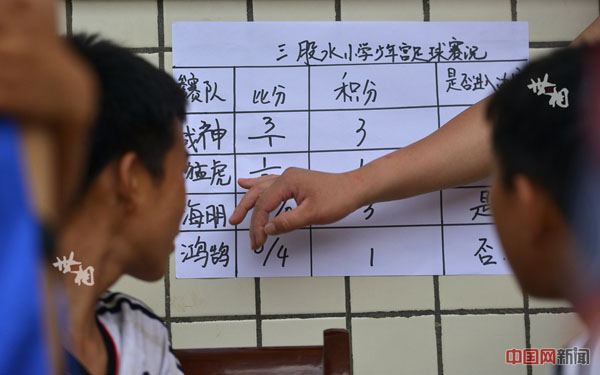 三股水小学少年宫足球赛况
赛队 比分 积分 是否进入
战神 3/1 3
猛虎 1/
海明 3 是
鸿鹄 0/4 1 否
世相
世相
中国网新闻